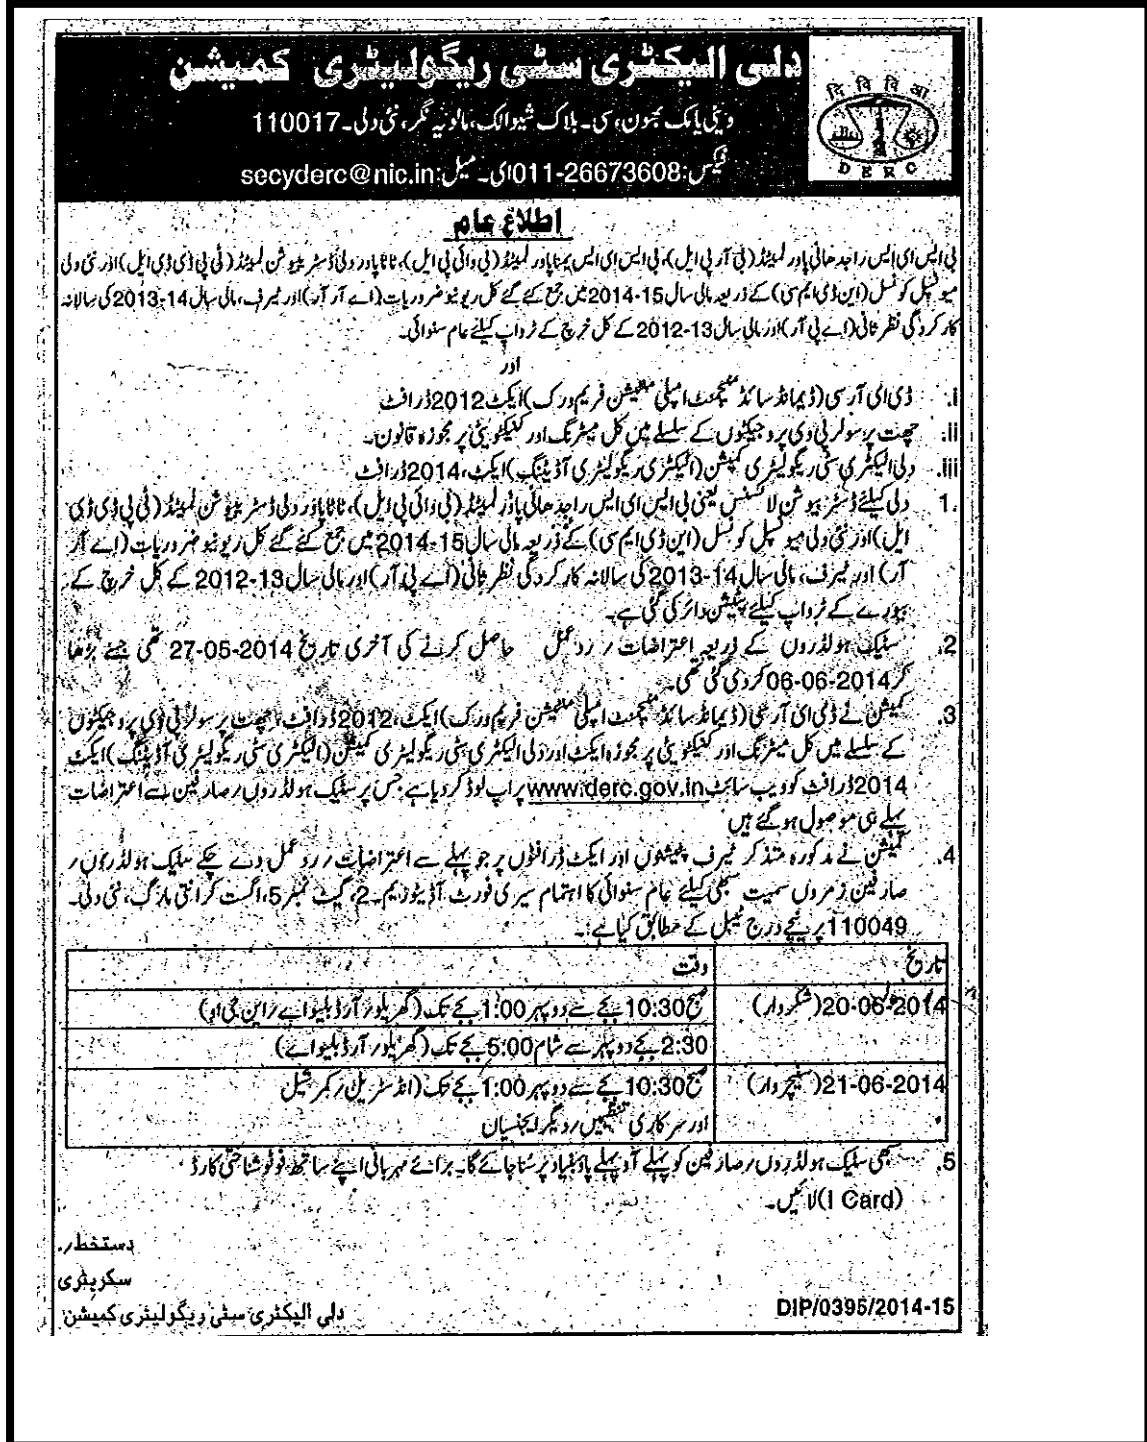 دلی الیکٹری سٹی ریگولیٹری کمیشن
دि वि वि आ
DERC
ونئی یامک بھون، سی۔ بلاک شیوالک، مالویہ نگر، نئی دلی۔110017
فیکس:011-26673608ای۔ میل:secyderc@nic.in
اطلاع عام
بی ایس ای ایس راجدھانی پاور لمیٹڈ (بی آر پی ایل)، بی ایس ای ایس یمنا پاور لمیٹڈ (بی وائی پی ایل)، ٹاٹا پاور دلی ڈسٹریبیوشن لمیٹڈ (ٹی پی ڈی ڈی ایل) اور نئی دلی
میونسپل کونسل (این ڈی ایم سی) کے ذریعہ مالی سال 15-2014 میں جمع کئے گئے کل ریونیو ضروریات (اے آر آر) اور ٹیرف، مالی سال 14-2013 کی سالانہ
کارکردگی نظر ثانی (اے پی آر) اور مالی سال 13-2012 کے کل خرچ کے ٹرواپ کیلئے عام سنوائی۔
اور
i. ڈی ای آر سی (ڈیمانڈ سائڈ منیجمنٹ امپلی منٹیشن فریم ورک) ایکٹ 2012 ڈرافٹ
ii. چھت پر سولر پی وی پروجیکٹوں کے سلسلے میں کل میٹرنگ اور کنیکٹویٹی پر مجوزہ قانون۔
iii. دلی الیکٹری سٹی ریگولیٹری کمیشن (الیکٹری ریگولیٹری آڈیٹنگ) ایکٹ، 2014 ڈرافٹ
1. دلی کیلئے ڈسٹریبیوشن لائسنس یعنی بی ایس ای ایس راجدھانی پاور لمیٹڈ (بی وائی پی ایل)، ٹاٹا پاور دلی ڈسٹریبیوشن لمیٹڈ (ٹی پی ڈی ڈی
ایل) اور نئی دلی میونسپل کونسل (این ڈی ایم سی) کے ذریعہ مالی سال 15-2014 میں جمع کئے گئے کل ریونیو ضروریات (اے آر
آر) اور ٹیرف، مالی سال 14-2013 کی سالانہ کارکردگی نظر ثانی (اے پی آر) اور مالی سال 13-2012 کے کل خرچ کے
بیورے کے ٹرواپ کیلئے پٹیشن دائر کی گئی ہے۔
2. سٹیک ہولڈروں کے ذریعہ اعتراضات / ردعمل حاصل کرنے کی آخری تاریخ 27-05-2014 تھی جسے بڑھا
کر 06-06-2014 کردی گئی تھی۔
3. کمیشن نے ڈی ای آر سی (ڈیمانڈ سائڈ منیجمنٹ امپلی منٹیشن فریم ورک) ایکٹ، 2012 ڈرافٹ، چھت پر سولر پی وی پروجیکٹوں
کے سلسلے میں کل میٹرنگ اور کنیکٹویٹی پر مجوزہ ایکٹ اور دلی الیکٹری سٹی ریگولیٹری کمیشن (الیکٹری سٹی ریگولیٹری آڈیٹنگ) ایکٹ
2014 ڈرافٹ کو ویب سائٹ www.derc.gov.in پر اپ لوڈ کردیا ہے جس پر سٹیک ہولڈروں / صارفین سے اعتراضات
پہلے ہی موصول ہوگئے ہیں
4. کمیشن نے مذکورہ متذکر ٹیرف پٹیشنوں اور ایکٹ ڈرافٹوں پر جو پہلے سے اعتراضات / ردعمل دے چکے سٹیک ہولڈروں /
صارفین زمروں سمیت سبھی کیلئے عام سنوائی کا اہتمام سیری فورٹ آڈیٹوریم۔2، گیٹ نمبر 5، اگست کرانتی مارگ، نئی دلی۔
110049 پر نیچے درج ٹیبل کے مطابق کیا ہے:۔
تاریخ وقت
20-06-2014 (شکروار) صبح 10:30 بجے سے دوپہر 1:00 بجے تک (گھریلو / آر ڈبلیو اے / این جی او)
2:30 بجے دوپہر سے شام 5:00 بجے تک (گھریلو / آر ڈبلیو اے)
21-06-2014 (سنیچروار) صبح 10:30 بجے سے دوپہر 1:00 بجے تک (انڈسٹریل / کمرشیل
اور سرکاری تنظیمیں / دیگر ایجنسیاں
5. سبھی سٹیک ہولڈروں / صارفین کو پہلے آؤ پہلے پاؤ بنیاد پر سنا جائے گا۔ برائے مہربانی اپنے ساتھ فوٹو شناختی کارڈ
(I Card) لائیں۔
دستخط/۔
سکریٹری
دلی الیکٹری سٹی ریگولیٹری کمیشن
DIP/0395/2014-15